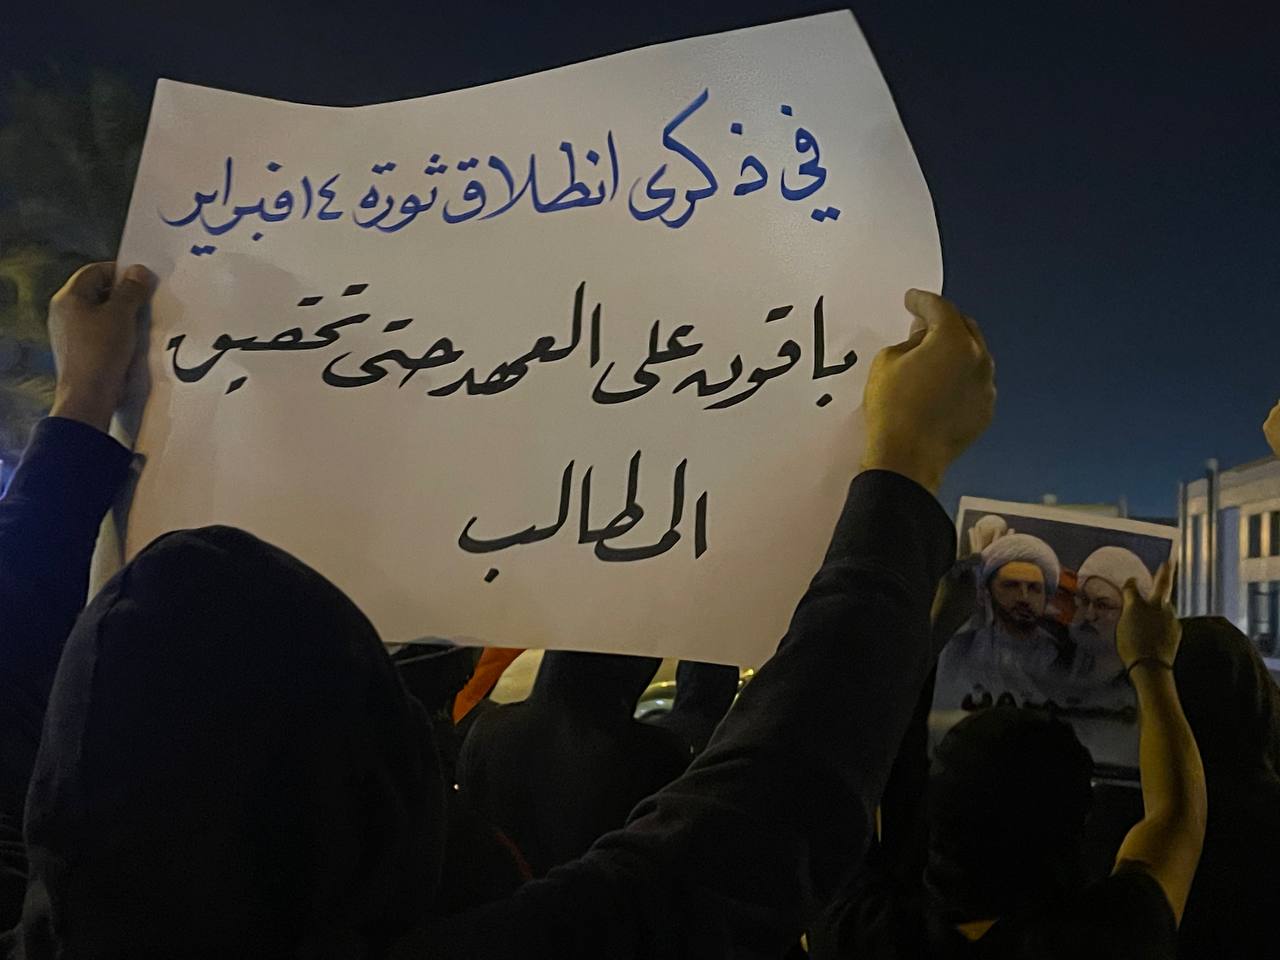 في ذكرى انطلاق ثورة ١٤ فبراير
باقون على العهد حتى تحقيق
المطالب